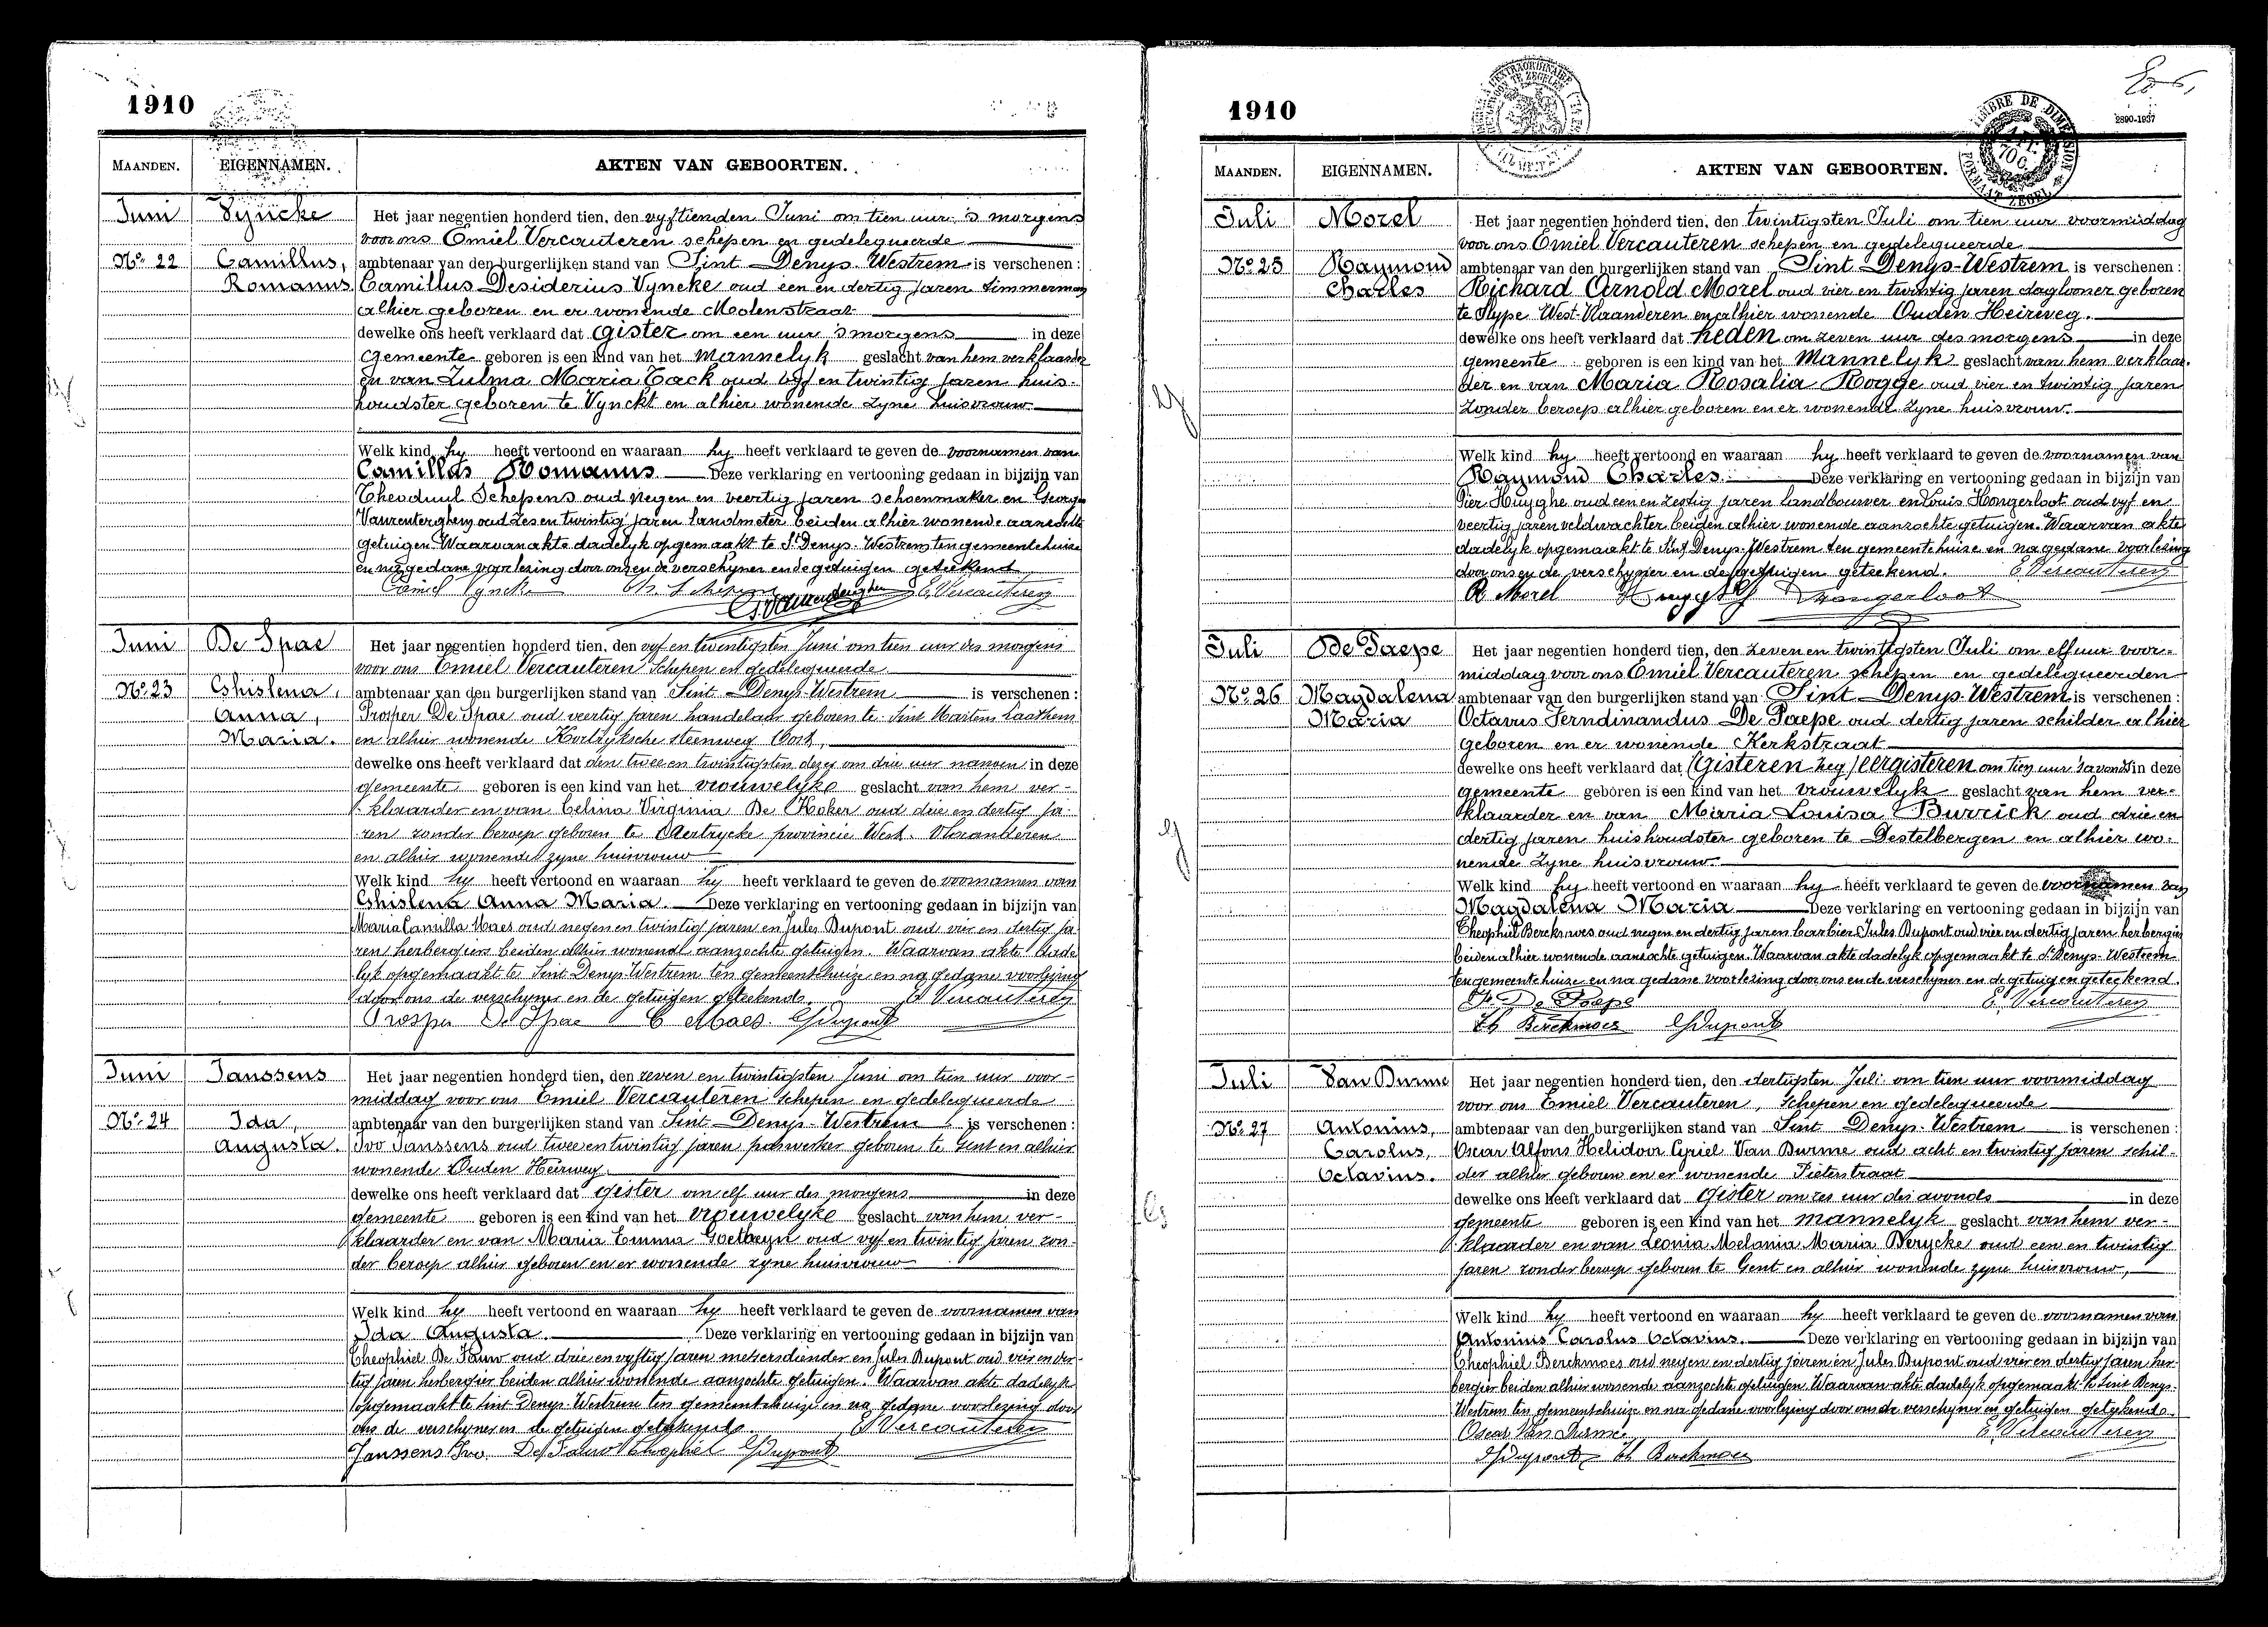 1910
MAANDEN. EIGENNAMEN. AKTEN VAN GEBOORTEN.
Juni Vyncke Het jaar negentien honderd tien, den vyftienden Juni om tien uur 's morgens
voor ons Emiel Vercauteren schepen en gedelegueerde
No. 22 Camillus, ambtenaar van den burgerlijken stand van Sint Denys-Westrem is verschenen :
Romanus Camillus Desiderius Vyncke oud een en dertig jaren timmerman
alhier geboren en er wonende Molenstraat
dewelke ons heeft verklaard dat gister om een uur 's morgens in deze
gemeente geboren is een kind van het mannelyk geslacht van hem verklaarder
en van Zulma Maria Tack oud vyf en twintig jaren huis-
houdster geboren te Vynckt en alhier wonende zyne huisvrouw
Welk kind hy heeft vertoond en waaraan hy heeft verklaard te geven de voornamen van
Camillus Romanus Deze verklaring en vertooning gedaan in bijzijn van
Theoduul Schepens oud negen en veertig jaren schoenmaker en George
oud zes en twintig jaren landmeter beiden alhier wonende aanzochte
getuigen. Waarvan akte dadelyk opgemaakt te St Denys-Westrem ten gemeentehuize
en na gedane voorlezing door ons en de verschyner en de getuigen geteekend
Camiel Vyncke Th. Schepens E. Vercauteren
Juni De Spae Het jaar negentien honderd tien, den vyf en twintigsten Juni om tien uur des morgens
voor ons Emiel Vercauteren schepen en gedelegueerde
No. 23 Ghislena, ambtenaar van den burgerlijken stand van Sint Denys-Westrem is verschenen :
Anna, Prosper De Spae oud veertig jaren handelaar geboren te Sint Martens Laathem
Maria. en alhier wonende Kortryksche steenweg Oost,
dewelke ons heeft verklaard dat den twee en twintigsten dezer om drie uur namen in deze
gemeente geboren is een kind van het vrouwelyke geslacht van hem ver-
klaarder en van Celina Virginia De Hoker oud drie en dertig ja-
ren zonder beroep geboren te Aertrycke provincie West-Vlaanderen
en alhier wonende zyne huisvrouw
Welk kind hy heeft vertoond en waaraan hy heeft verklaard te geven de voornamen van
Ghislena Anna Maria. Deze verklaring en vertooning gedaan in bijzijn van
Maria Camilla Maes oud negen en twintig jaren en Jules Dupont oud vier en dertig ja-
ren herbergiers beiden alhier wonende aanzochte getuigen. Waarvan akte dade-
lyk opgemaakt te Sint Denys-Westrem ten gemeentehuize en na gedane voorlezing
door ons de verschyner en de getuigen geteekend. E. Vercauteren
Prosper De Spae C Maes. J Dupont
Juni Janssens Het jaar negentien honderd tien, den zeven en twintigsten Juni om tien uur voor-
middag voor ons Emiel Vercauteren schepen en gedelegueerde
No. 24 Ida, ambtenaar van den burgerlijken stand van Sint Denys-Westrem is verschenen :
Augusta. Ivo Janssens oud twee en twintig jaren paswerker geboren te Gent en alhier
wonende Ouden Heirweg.
dewelke ons heeft verklaard dat gister om elf uur des morgens in deze
gemeente geboren is een kind van het vrouwelyke geslacht van hem ver-
klaarder en van Maria Emma Goetheyn oud vyf en twintig jaren zon-
der beroep alhier geboren en er wonende zyne huisvrouw
Welk kind hy heeft vertoond en waaraan hy heeft verklaard te geven de voornamen van
Ida Augusta. Deze verklaring en vertooning gedaan in bijzijn van
Theophiel De Pauw oud drie en vyftig jaren metsersdiender en Jules Dupont oud vier en der-
tig jaren herbergier beiden alhier wonende aanzochte getuigen. Waarvan akte dadelyk
opgemaakt te Sint Denys-Westrem ten gemeentehuize en na gedane voorlezing door
ons de verschyner en de getuigen geteekend. E. Vercauteren
Janssens Ivo. De Pauw Theophiel J Dupont
1910
2890-1937
MAANDEN. EIGENNAMEN. AKTEN VAN GEBOORTEN.
Juli Morel Het jaar negentien honderd tien, den twintigsten Juli om tien uur voormiddag
voor ons Emiel Vercauteren schepen en gedelegueerde
No. 25 Raymond ambtenaar van den burgerlijken stand van Sint Denys-Westrem is verschenen :
Charles Richard Arnold Morel oud vier en twintig jaren daglooner geboren
te Slype West-Vlaanderen en alhier wonende Ouden Heirweg.
dewelke ons heeft verklaard dat heden om zeven uur des morgens in deze
gemeente geboren is een kind van het mannelyk geslacht van hem verklaar-
der en van Maria Rosalia Rogge oud vier en twintig jaren
zonder beroep alhier geboren en er wonende zyne huisvrouw.
Welk kind hy heeft vertoond en waaraan hy heeft verklaard te geven de voornamen van
Raymond Charles. Deze verklaring en vertooning gedaan in bijzijn van
Pier Huyghe oud een en zestig jaren landbouwer en Louis Hongerloot oud vyf en
veertig jaren veldwachter beiden alhier wonende aanzochte getuigen. Waarvan akte
dadelyk opgemaakt te Sint Denys-Westrem ten gemeentehuize en na gedane voorlezing
door ons en de verschyner en de getuigen geteekend. E. Vercauteren
R Morel Huyghe Hongerloot
Juli De Paepe Het jaar negentien honderd tien, den zeven en twintigsten Juli om elf uur voor-
middag voor ons Emiel Vercauteren schepen en gedelegueerden
No. 26 Magdalena ambtenaar van den burgerlijken stand van Sint Denys-Westrem is verschenen :
Maria Octavus Ferndinandus De Paepe oud dertig jaren schilder alhier
geboren en er wonende Kerkstraat
dewelke ons heeft verklaard dat (Gisteren zeg) eergisteren om tien uur 's avonds in deze
gemeente geboren is een kind van het vrouwelyk geslacht van hem ver-
klaarder en van Maria Louisa Burrick oud drie en
dertig jaren huishoudster geboren te Destelbergen en alhier wo-
nende zyne huisvrouw.
Welk kind hy heeft vertoond en waaraan hy heeft verklaard te geven de voornamen van
Magdalena Maria Deze verklaring en vertooning gedaan in bijzijn van
Theophiel Berckmoes oud negen en dertig jaren barbier Jules Dupont oud vier en dertig jaren herbergier
beiden alhier wonende aanzochte getuigen. Waarvan akte dadelyk opgemaakt te St Denys-Westrem
ten gemeentehuize en na gedane voorlezing door ons en de verschyner en de getuigen geteekend.
De Paepe E. Vercauteren
Th Berckmoes J Dupont
Juli Van Durme Het jaar negentien honderd tien, den dertigsten Juli om tien uur voormiddag
voor ons Emiel Vercauteren, schepen en gedelegueerde
No. 27 Antonius, ambtenaar van den burgerlijken stand van Sint Denys-Westrem is verschenen :
Carolus, Oscar Alfons Helidoor Cyriel Van Durme oud acht en twintig jaren schil-
Octavius. der alhier geboren en er wonende Pieterstraat
dewelke ons heeft verklaard dat gister om zes uur des avonds in deze
gemeente geboren is een kind van het mannelyk geslacht van hem ver-
klaarder en van Leonia Melania Maria Derycke oud een en twintig
jaren zonder beroep geboren te Gent en alhier wonende zyne huisvrouw,
Welk kind hy heeft vertoond en waaraan hy heeft verklaard te geven de voornamen van
Antonius Carolus Octavius. Deze verklaring en vertooning gedaan in bijzijn van
Theophiel Berckmoes oud negen en dertig jaren en Jules Dupont oud vier en dertig jaren her-
bergier beiden alhier wonende aanzochte getuigen. Waarvan akte dadelyk opgemaakt te Sint Denys-
Westrem ten gemeentehuize en na gedane voorlezing door ons de verschyner en getuigen geteekend.
Oscar Van Durme E. Vercauteren
J Dupont Th Berckmoes